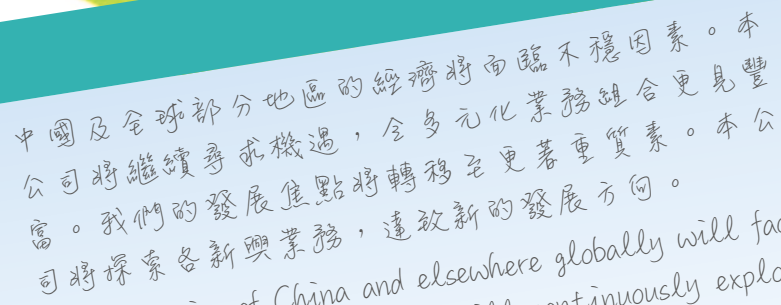 中國及全球部分地區的經濟將面臨不穩因素。本
公司將繼續尋求機遇，令多元化業務組合更見豐
富。我們的發展焦點將轉移至更著重質素。本公
司將探索各新興業務，達致新的發展方向。
of China and elsewhere globally will fac
continuously explo